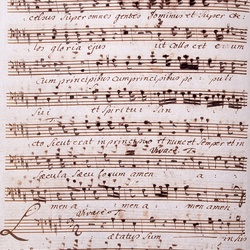 celsus super omnes gentes Dominus et super cœ
los gloria ejus ut Collocet e um
Cum principibus cum principibus po pu li
Sui et Spiritui San
cto Sicut erat in principio et nunc et Semper et in
Vivace
Sæcula Sæculorum amen a
men a men a men amen
Vivace
L
ctatus Sum